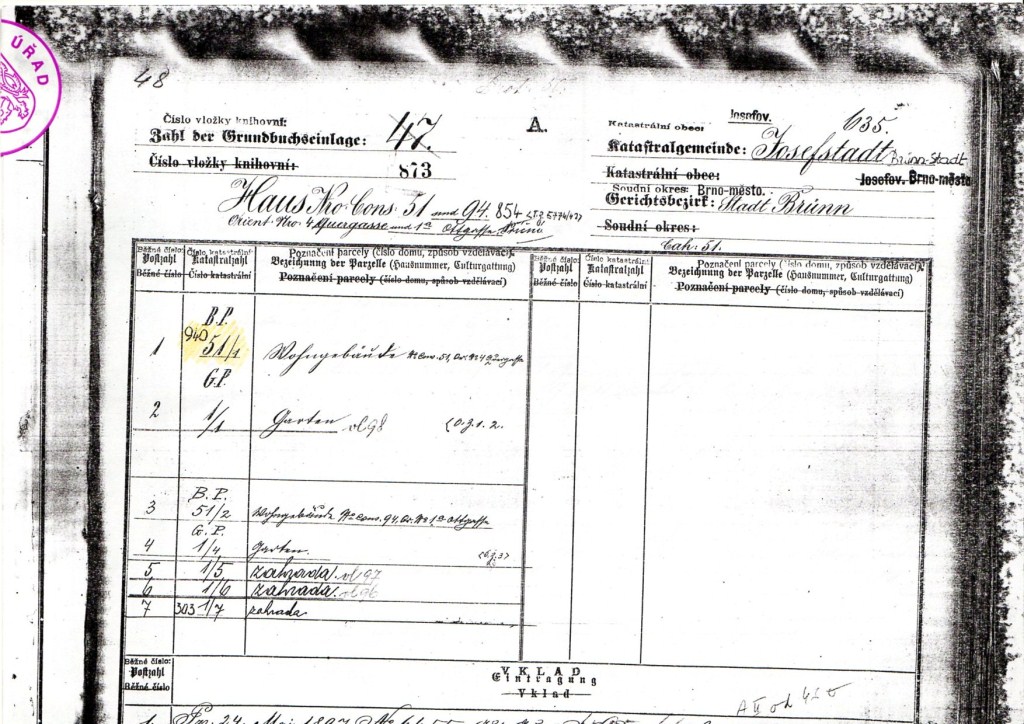 ÚŘAD
48
Číslo vložky knihovní:
Zahl der Grundbuchseinlage: 47.
Číslo vložky knihovní:
873
A.
Josefov. 635.
Katastrální obec:
Katastralgemeinde: Josefstadt Brünn-Stadt
Katastrální obec: Josefov. Brno-město
Soudní okres: Brno-město.
Gerichtsbezirk: Stadt Brünn
Soudní okres:
Haus Nro Cons. 51 und 94. 854
Orient. Nro 4 Quergasse und 1a Ottgasse Brünn
Běžné číslo: Číslo katastrální Poznačení parcely (číslo domu, způsob vzdělávací).
Postzahl Katastralzahl Bezeichnung der Parzelle (Hausnummer, Culturgattung)
Běžné číslo Číslo katastrální Poznačení parcely (číslo domu, spůsob vzdělávací)
Běžné číslo: Číslo katastrální Poznačení parcely (číslo domu, způsob vzdělávací).
Postzahl Katastralzahl Bezeichnung der Parzelle (Hausnummer, Culturgattung)
Běžné číslo Číslo katastrální Poznačení parcely (číslo domu, spůsob vzdělávací)
B.P.
940
1 51/1 Wohngebäude N Cons. 51, Or. N 4 Quergasse
G.P.
2 1/1 Garten
B.P.
3 51/2 Wohngebäude No Cons. 94, Or. No 1a Ottgasse
G.P.
4 1/4 Garten.
5 1/5 zahrada.
6 1/6 zahrada.
7 303 1/7 zahrada
Běžné číslo:
Postzahl
Běžné číslo
VKLAD
Eintragung
Vklad